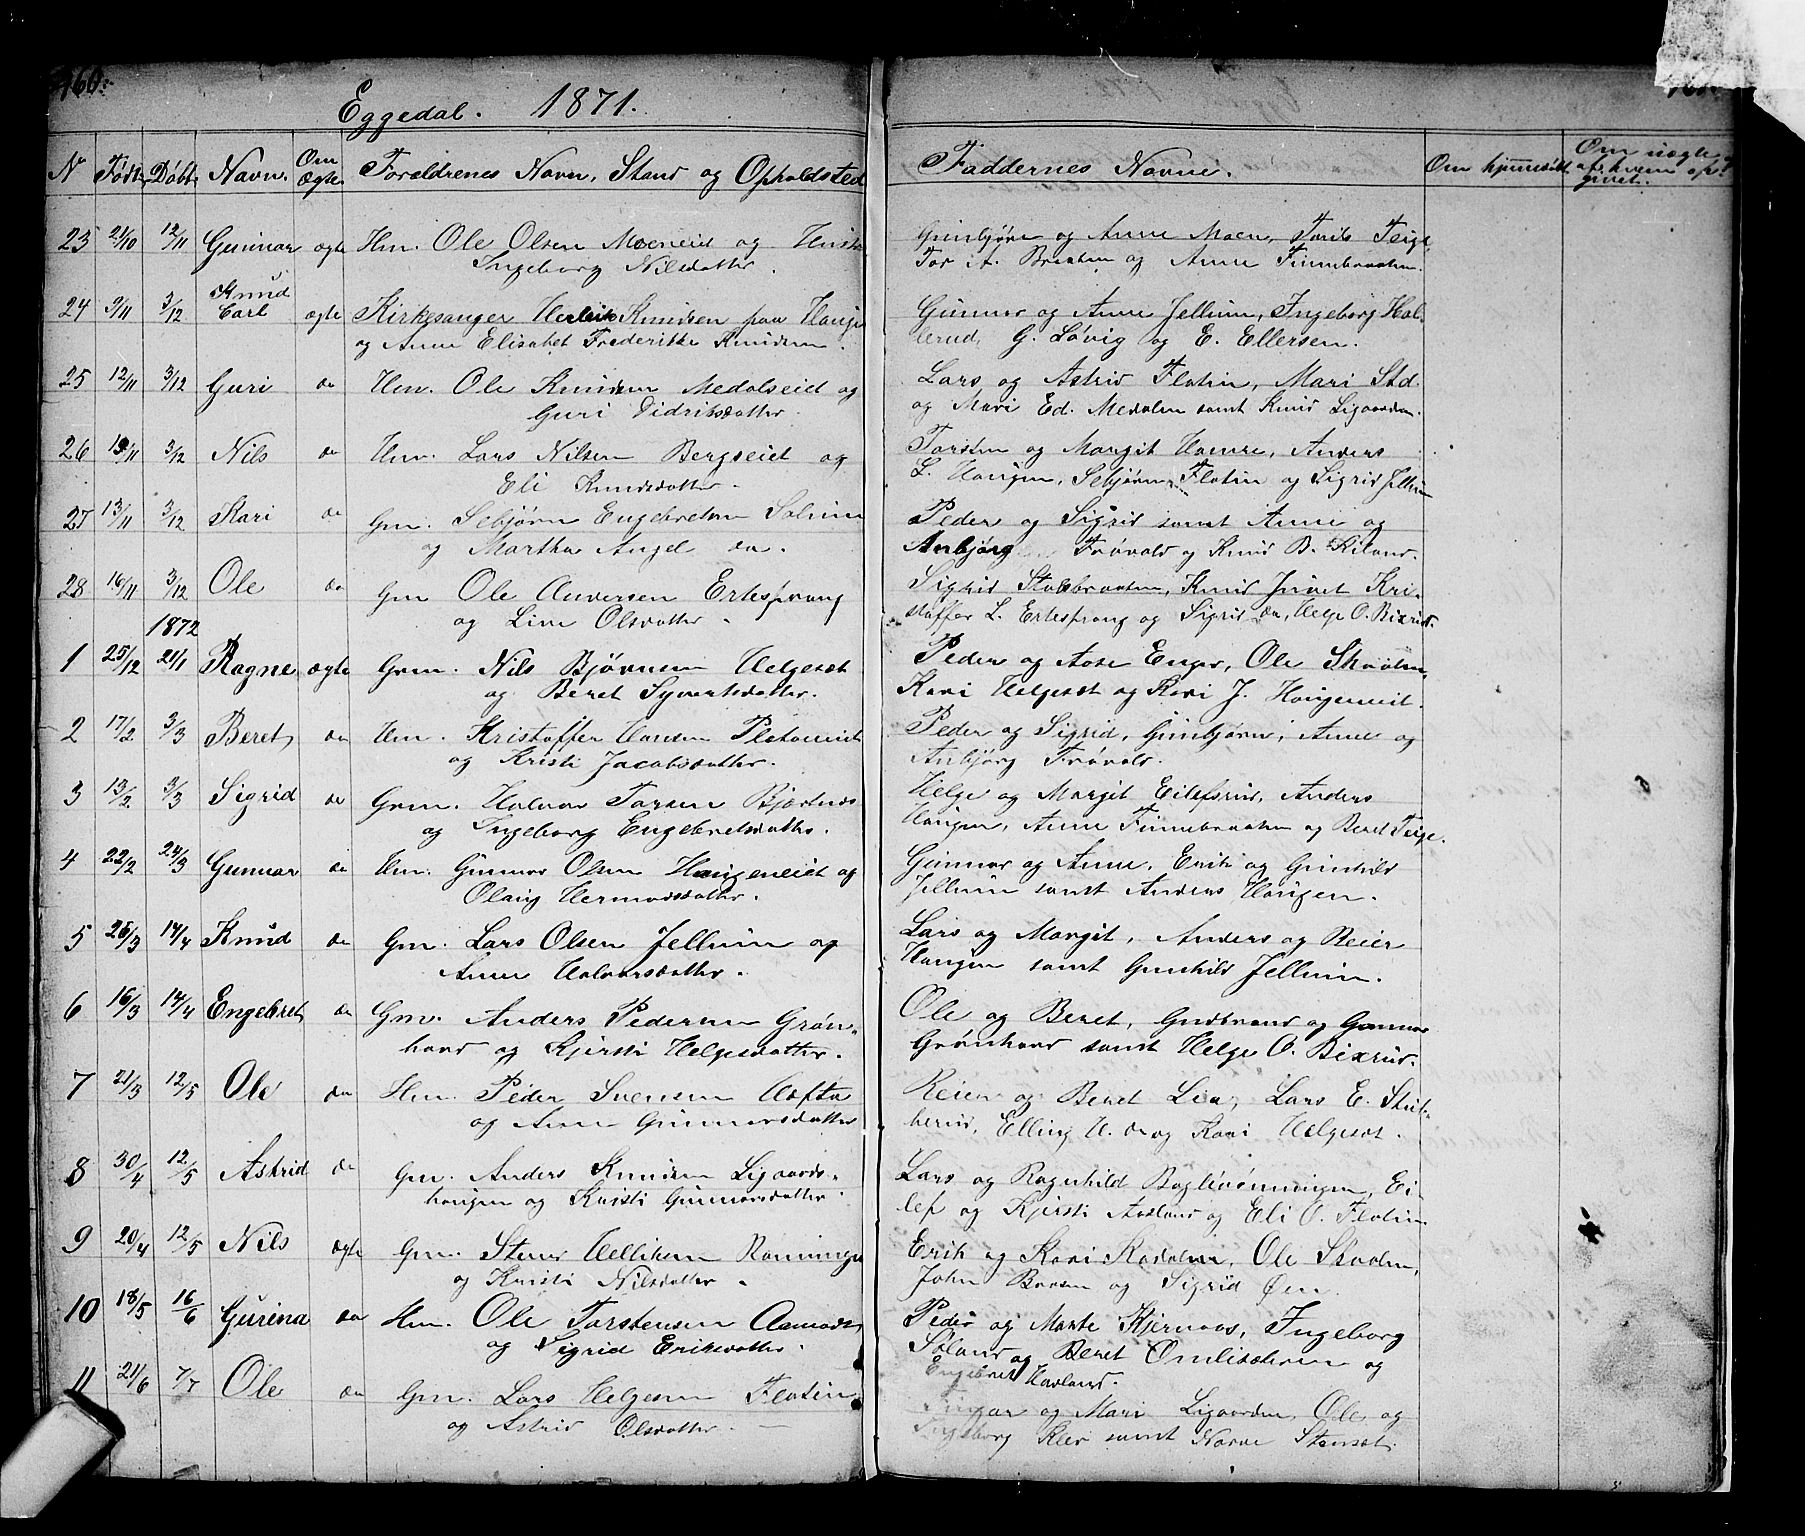 160.
Eggedal. 1871.
No Født. Døbt. Navn. Om ægte. Forældrenes Navn, Stand og Opholdsted
Faddernes Navne. Om hjemmedøbt Om uægte, af hvem opgivet.
23 21/10 12/11 Gunnar ægte Hm. Ole Olsen Moeneiet og Hust
Ingeborg Nilsdatter.
Gunbjørn og Anne Moen, Torils Teige
Tor A. Braaten og Anne Finnebraaten.
24 9/11 3/12 Knud Carl ægte Kirkesanger Herleik Knudsen paa Hauge
og Anne Elisabet Frederikke Knudsen.
Gunnar og Anne Jellum, Ingeborg Hol-
lerud, G. Løvig og E. Ellersen.
25 12/11 3/12 Guri do Hm. Ole Knudsen Medalseiet og
Guri Didriksdatter.
Lars og Astrid Flatin, Mari Std.
og Mari Ed. Medalen samt Knud Ligaarden.
26 19/11 3/12 Nils do Hm. Lars Nilsen Bergseiet og
Eli Knudsdatter.
Torsten og Margit Hamre, Anders
L. Haugen, Sebjørn Flatin og Sigrid Jellum
27 13/11 3/12 Kari do Gm. Sebjørn Engebretsen Solum
og Martha Angel do.
Peder og Sigrid samt Anne og
Anbjørg Frøvold og Knud B. Kiland.
28 16/11 3/12 Ole do Gm Ole Andersen Ertesprang
og Live Olsdatter.
Sigrid Stadsbraaten, Knud Juvet Kri-
stoffer L. Ertesprang og Sigrid do, Helge O. Bixrud.
1872
1 25/12 21/1 Ragne ægte Grm. Nils Bjørnsen Helgeset
og Beret Syvertsdatter.
Peder og Aase Enger, Ole Skaalen,
Kari Helgeset og Kari J. Haugeneiet.
2 17/2 3/3 Beret do Hm. Kristoffer Hansen Plataneiet
og Kristi Jacobsdatter.
Peder og Sigrid, Gunbjørn, Anne og
Anbjørg Frøvold.
3 13/2 3/3 Sigrid do Grm. Halvor Torsen Bjertnes
og Ingeborg Engebretsdatter.
Helge og Margit Eilefsrud, Anders
Haugen, Anne Finnebraaten og Beret Teige.
4 22/2 24/3 Gunnar do Hm. Gunnar Olsen Haugeneiet og
Olaug Hermodsdatter.
Gunnar og Anne, Erik og Gunhild
Jellum samt Anders Haugen.
5 26/3 14/4 Knud do Gm. Lars Olsen Jellum og
Anne Halvorsdatter.
Lars og Margit, Anders og Reier
Haugen samt Gunhild Jellum.
6 16/3 14/4 Engebret do Gm. Anders Pedersen Grøn-
hovd og Kjersti Helgesdatter.
Ole og Beret, Gudbrand og Gunnar
Grønhovd samt Helge O. Bixrud.
7 21/3 12/5 Ole do Hm. Peder Svensen Hofto
og Anne Gunnarsdatter
Reier og Beret Lia, Lars E. Skat-
terud, Elling H. do og Kari Helgeset.
8 30/4 12/5 Astrid do Gm. Anders Knudsen Ligaards-
haugen og Kristi Gunnarsdatter.
Lars og Ragnhild Baglirønningen, Ei-
lef og Kjersti Aasland og Eli O. Flatin
9 20/4 12/5 Nils ægte Gm. Stener Helliksen Ramningen
og Kristi Nilsdatter.
Erik og Kari Kadalen, Ole Skaalen,
John Braaten og Sigrid Øen.
10 18/5 16/6 Gurina do Hm. Ole Torstensen Aamodt
og Sigrid Eriksdatter.
Peder og Marte Kjernaas, Ingeborg
Sæland og Beret Omliseteren og
Engebret Havland.
11 21/6 7/7 Ole do Gm. Lars Helgesen Flatin
og Astrid Olsdatter.
Gunnar og Mari Ligaarden, Ole og
Ingeborg Klev samt Narve Stenset.